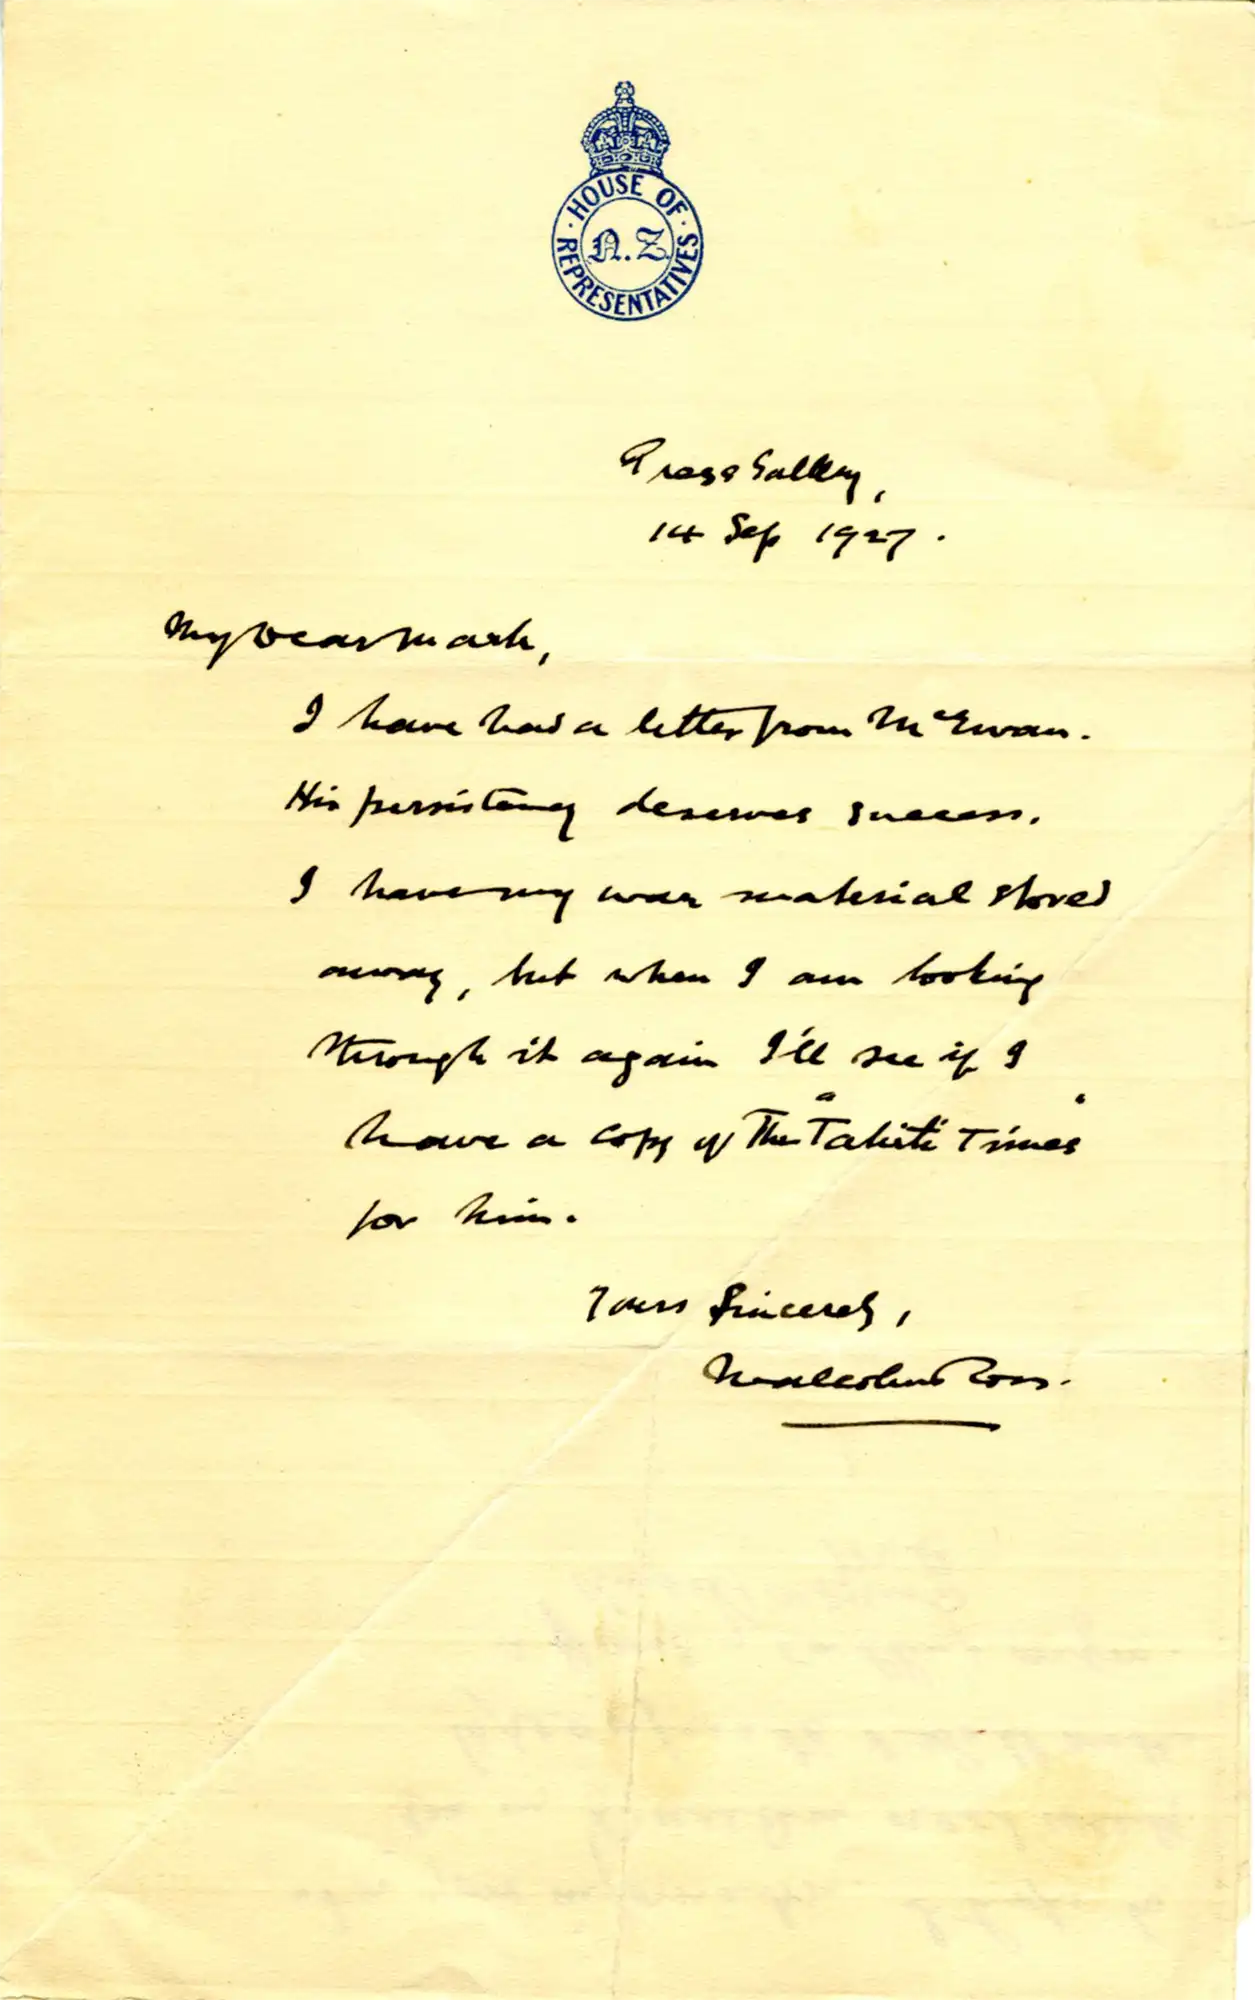 HOUSE OF REPRESENTATIVES
N.Z.
Press Gallery,
14 Sep 1927.
My Dear Mark,
I have had a letter from McEwan.
His persistency deserves success.
I have my war material stored
away, but when I am looking
through it again I'll see if I
have a copy of The "Tahiti Times"
for him.
Yours Sincerely,
Malcolm Ross.